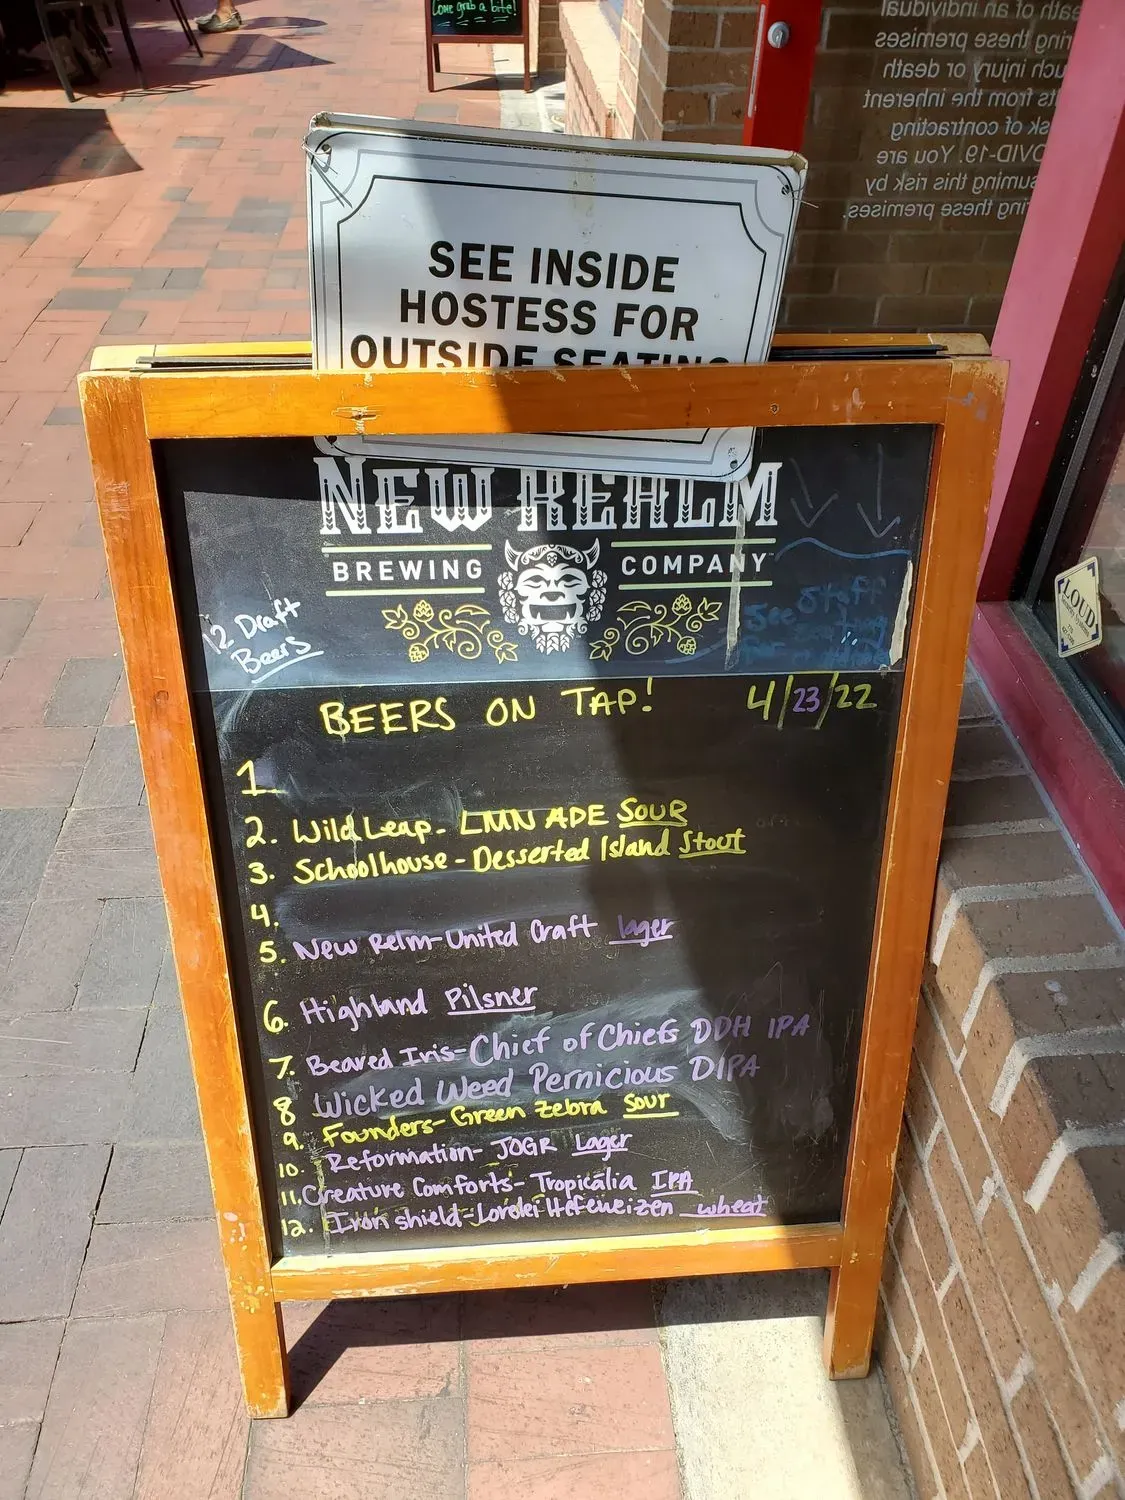 Come grab a bite!
eath of an individual
ring these premises
uch injury or death
ts from the inherent
sk of contracting
OVID-19. You are
suming this risk by
ring these premises.
SEE INSIDE
HOSTESS FOR
OUTSIDE SEATING
NEW REALM
BREWING COMPANY
LOUD
12 Draft
Beers
See Staff
BEERS ON TAP! 4/23/22
1
2. Wild Leap - LMN ADE SOUR
3. Schoolhouse - Desserted Island Stout
4.
5. New Relm-United Craft lager
6. Highland Pilsner
7. Beared Iris-Chief of Chiefs DDH IPA
8 Wicked Weed Pernicious DIPA
9. Founders-Green Zebra Sour
10. Reformation- JOGR Lager
11. Creature Comforts-Tropicália IPA
12. Iron shield-Lorelei Hefeweizen wheat